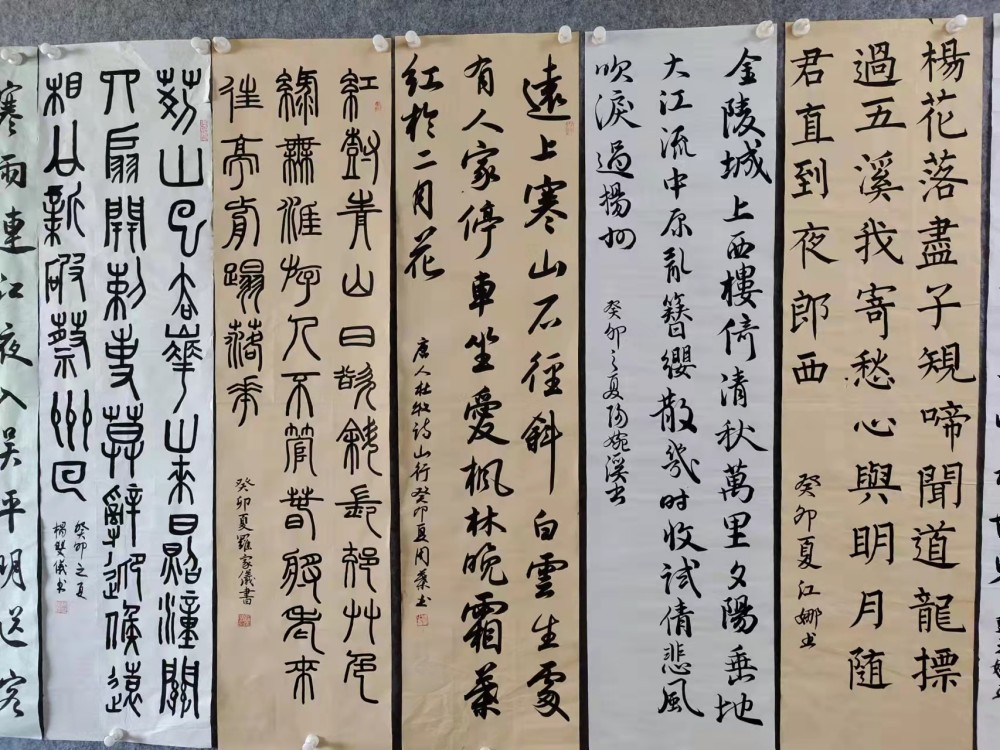 楊花落盡子規啼聞道龍標
過五溪我寄愁心與明月隨
君直到夜郎西
癸卯夏江娜书
金陵城上西樓倚清秋萬里夕陽垂地
大江流中原亂簪纓散幾时收试倩悲風
吹淚過揚州
癸卯之夏陶婉溪书
遠上寒山石徑斜白雲生處
有人家停車坐愛楓林晚霜葉
红於二月花
唐人杜牧诗山行癸卯夏周葉书
紅樹青山日欲斜長郊艸色
綠無涯遊人不管春將老來
往亭前蹋落花
癸卯夏羅家儀書
荊山已去華山來日照潼關
四扇開刺史莫辭迎候遠
相公新破蔡州回
癸卯之夏
楊斐儀书
寒雨連江夜入吴平明送客